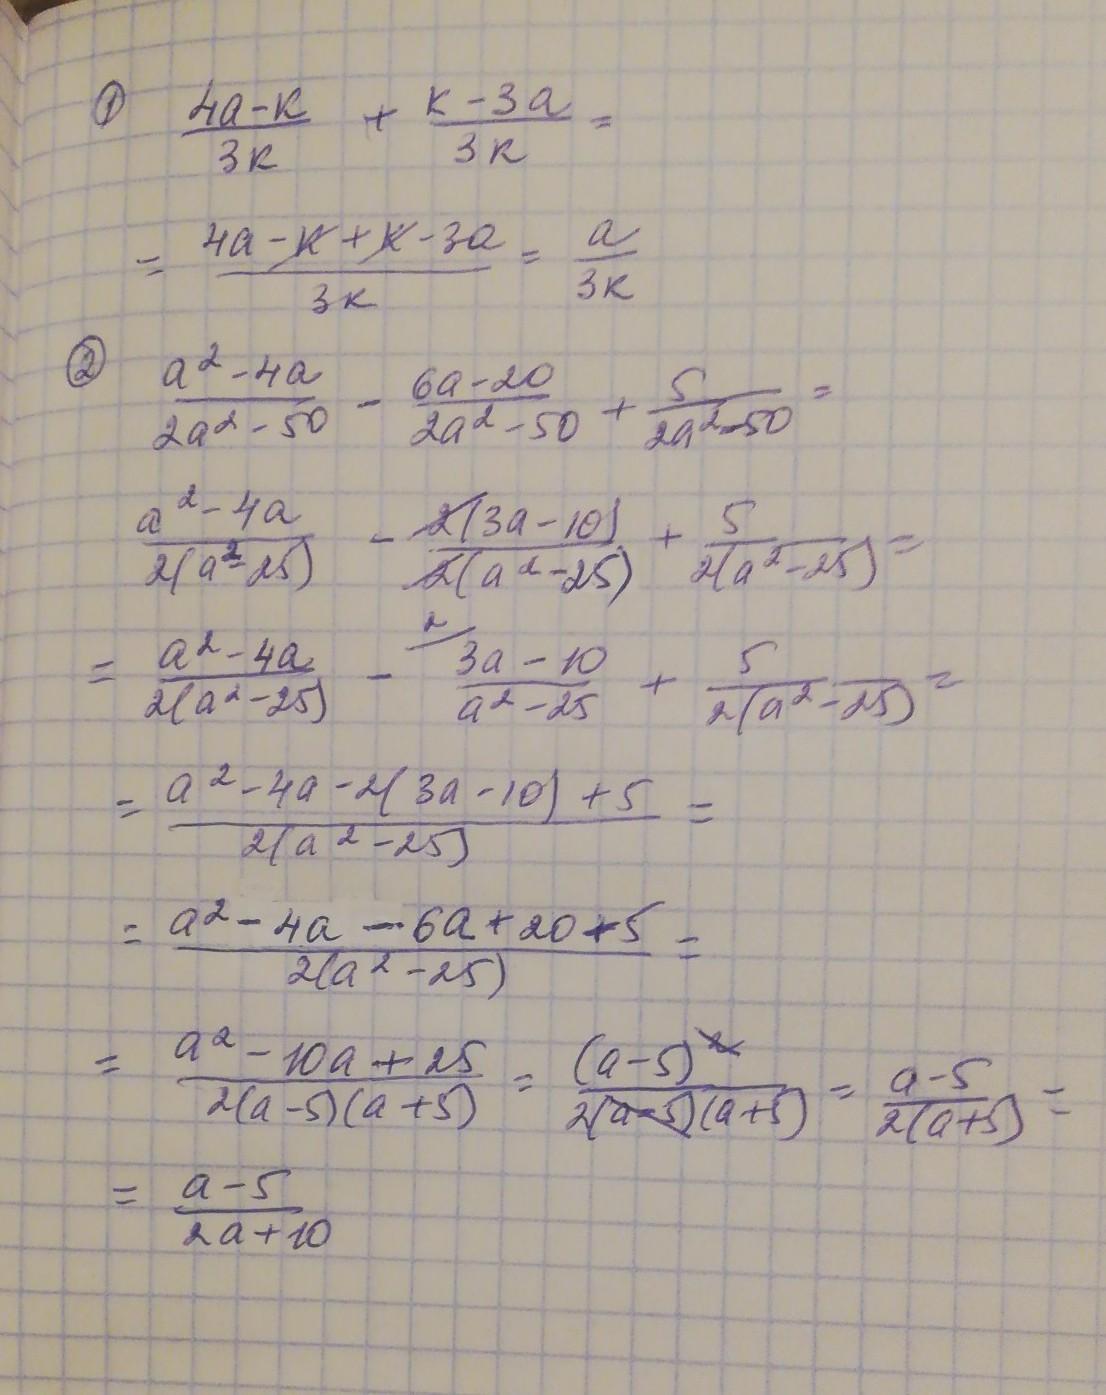 ① (4a-к)/(3к) + (к-3a)/(3к) =
= (4a-к+к-3a)/(3к) = a/(3к)
② (a²-4a)/(2a²-50) - (6a-20)/(2a²-50) + 5/(2a²-50) =
(a²-4a)/(2(a²-25)) - (2(3a-10))/(2(a²-25)) + 5/(2(a²-25)) =
= (a²-4a)/(2(a²-25)) - 2/ (3a-10)/(a²-25) + 5/(2(a²-25)) =
= (a²-4a-2(3a-10)+5)/(2(a²-25)) =
= (a²-4a-6a+20+5)/(2(a²-25)) =
= (a²-10a+25)/(2(a-5)(a+5)) = (a-5)²/(2(a-5)(a+5)) = (a-5)/(2(a+5)) =
= (a-5)/(2a+10)